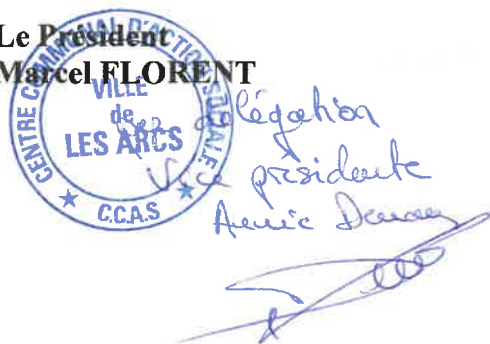 Le Président
Marcel FLORENT
CENTRE COMMUNAL D'ACTION SOCIALE
VILLE
de
LES ARCS
C.C.A.S
délégation
Vice présidente
Annie